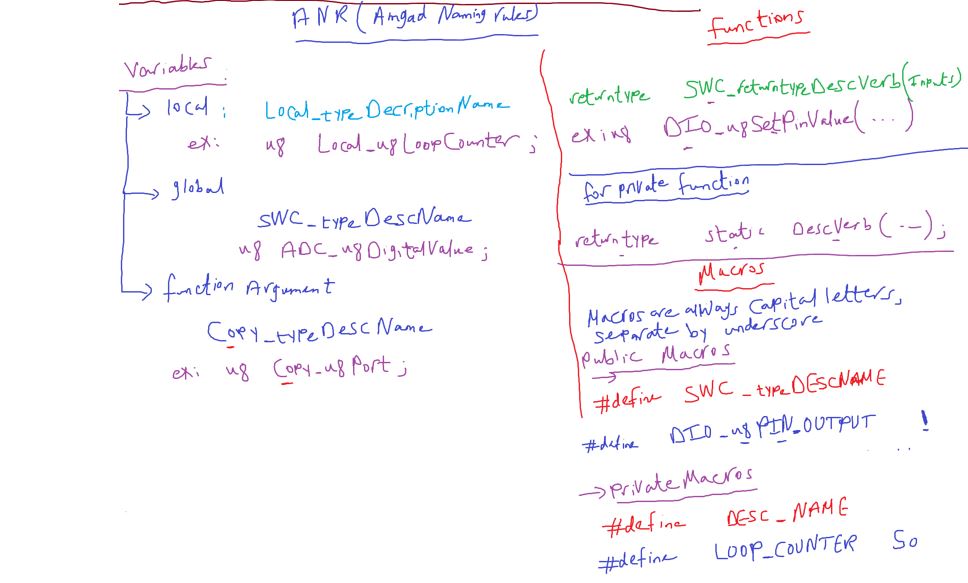 ANR (Amgad Naming rules)
Variables
local : Local_typeDecriptionName
ex: u8 Local_u8LoopCounter ;
global
SWC_typeDescName
u8 ADC_u8DigitalValue ;
function Argument
Copy_typeDescName
ex: u8 Copy_u8Port ;
functions
returntype SWC_returntypeDescVerb(Inputs)
ex: u8 DIO_u8SetPinValue(...)
for private function
returntype static DescVerb(...);
Macros
Macros are always Capital letters,
separate by underscore
public Macros
#define SWC_typeDESCNAME
#define DIO_u8PIN_OUTPUT !
private Macros
#define DESC_NAME
#define LOOP_COUNTER 50